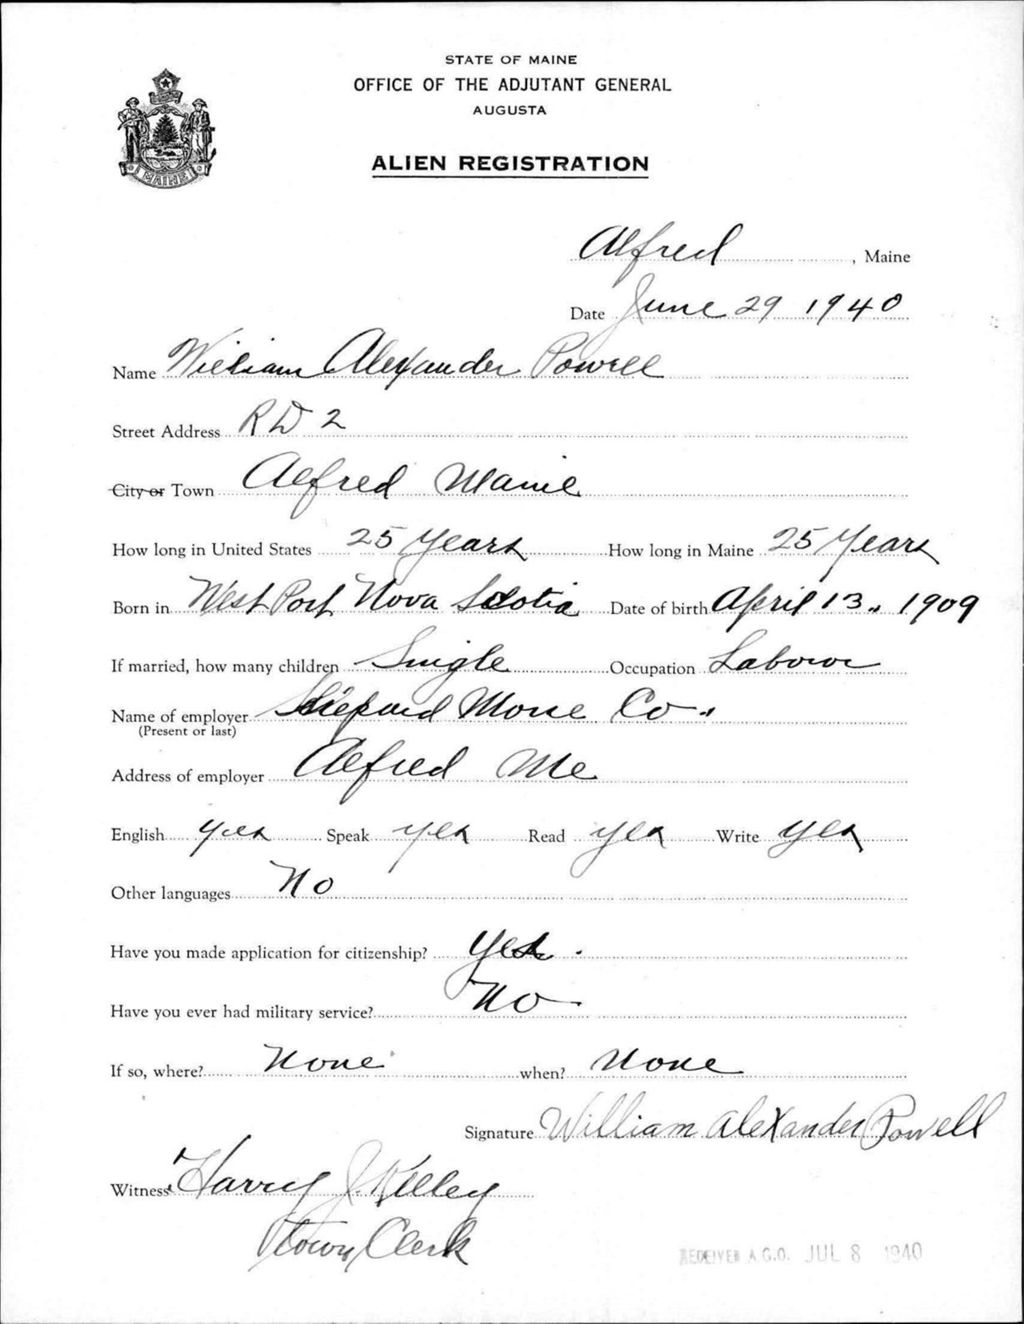 STATE OF MAINE
OFFICE OF THE ADJUTANT GENERAL
AUGUSTA
ALIEN REGISTRATION
MAINE
Alfred, Maine
Date June 29 1940
Name William Alexander Powell
Street Address R D 2
City or Town Alfred Maine
How long in United States 25 Years How long in Maine 25 Years
Born in West Port Nova Scotia Date of birth April 13., 1909
If married, how many children Single Occupation Laborer
Name of employer Shepard Morse Co.
(Present or last)
Address of employer Alfred Me
English Yes Speak Yes Read Yes Write Yes
Other languages No
Have you made application for citizenship? Yes.
Have you ever had military service? No
If so, where? None when? None
Signature William Alexander Powell
Witness Harry J. Kelley
Town Clerk
RECEIVED A.G.O. JUL 8 1940